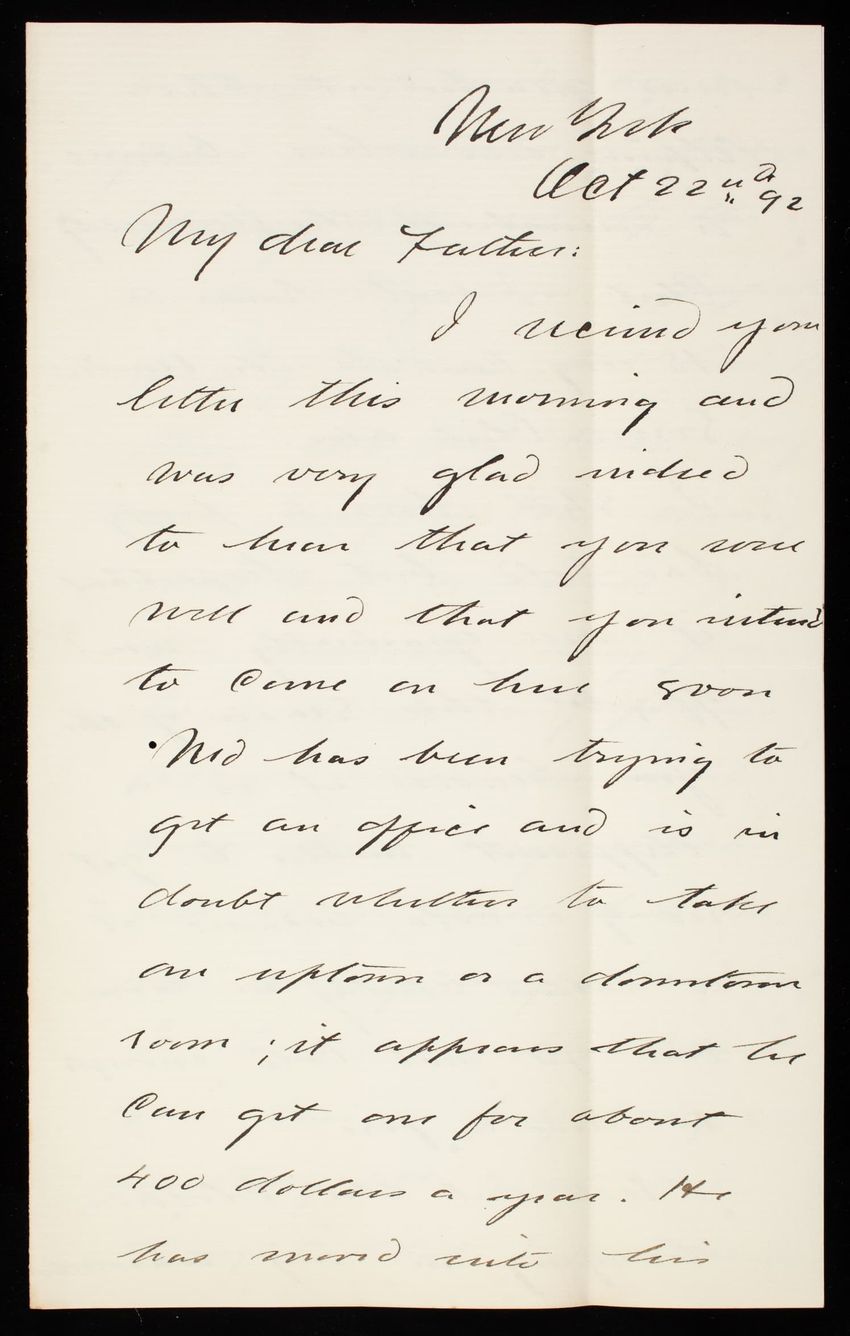 New York
Oct 22nd 92
My dear Father:
I received your
letter this morning and
was very glad indeed
to hear that you were
well and that you intend
to come on here soon
Ned has been trying to
get an office and is in
doubt whether to take
an uptown or a downtown
room ; it appears that he
can get one for about
400 dollars a year. He
has moved into his